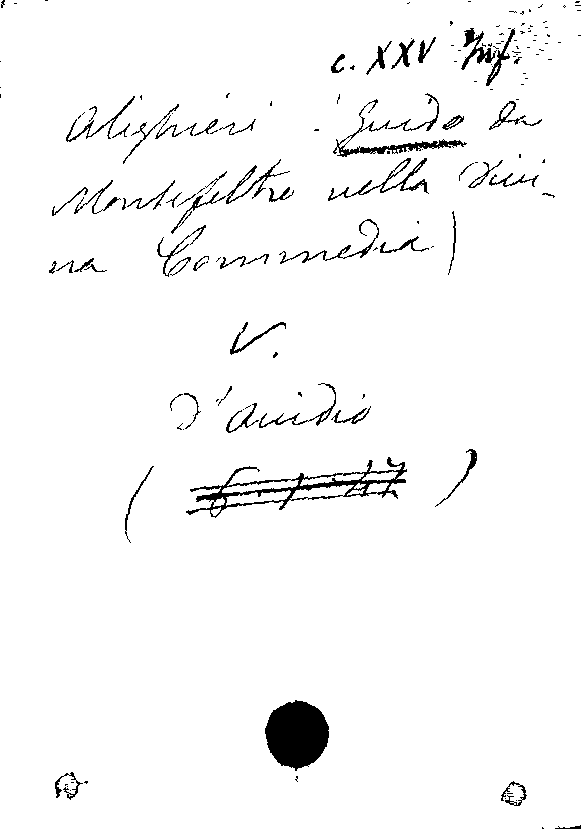 c. XXV Inf.
Alighieri : Guido da
Montefeltro nella Divi-
na Commedia)
V.
D'Ovidio
( 6-1-47 )